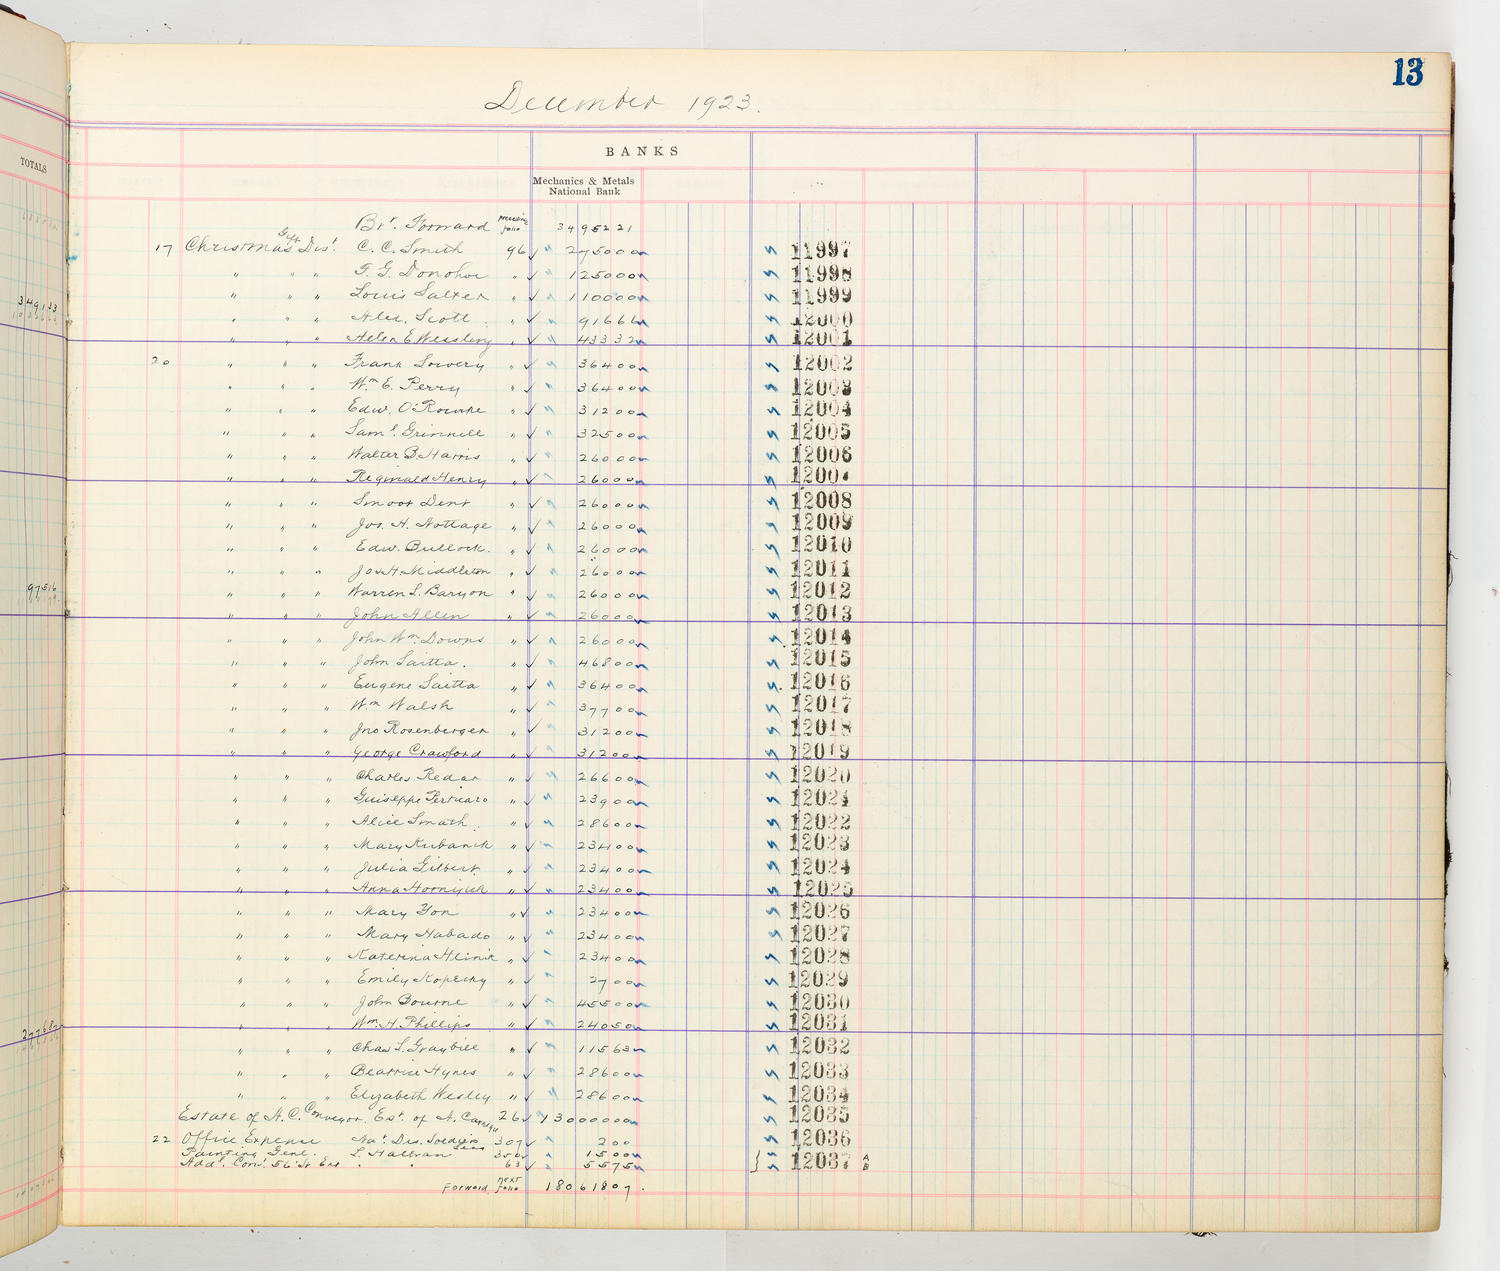 13
December 1923.
TOTALS
BANKS
Mechanics & Metals
National Bank
Br't. Forward preceding folio 34952 21
17 Christmas Gift Dis't. C. C. Smith 96 ✓ 2750 00 11997
" " " F. G. Donohoe " ✓ 1250 00 11998
" " " Louis Salter " ✓ 1100 00 11999
" " " Alex. Scott " ✓ 916 66 12000
" " " Helen E Wessling " ✓ 433 32 12001
20 " " " Frank Lowery " ✓ 364 00 12002
" " " Wm E. Perry " ✓ 364 00 12003
" " " Edw. O'Rourke " ✓ 312 00 12004
" " " Saml. Grinnell " ✓ 325 00 12005
" " " Walter B Harris " ✓ 260 00 12006
" " " Reginald Henry " ✓ 260 00 1200
" " " Smoot Dent " ✓ 260 00 12008
" " " Jos. H. Nottage " ✓ 260 00 12009
" " " Edw. Bullock. " ✓ 260 00 12010
" " " Jos H Middleton " ✓ 260 00 12011
" " " Warren L. Baryon " ✓ 260 00 12012
" " " John Allen " ✓ 260 00 12013
" " " John Wm. Downs " ✓ 260 00 12014
" " " John Saitta. " ✓ 468 00 12015
" " " Eugene Saitta " ✓ 364 00 12016
" " " Wm Walsh " ✓ 377 00 12017
" " " Jno Rosenberger " ✓ 312 00 12018
" " " George Crawford " ✓ 312 00 12019
" " " Charles Redar " ✓ 266 00 12020
" " " Guiseppe " ✓ 239 00 12021
" " " Alice Smath " ✓ 286 00 12022
" " " Mary Kubanik " ✓ 234 00 12023
" " " Julia Gilbert " ✓ 234 00 12024
" " " Anna Hornyich " ✓ 234 00 12025
" " " Mary Yon " ✓ 234 00 12026
" " " Mary Habado " ✓ 234 00 12027
" " " Katerina Hlinik " ✓ 234 00 12028
" " " Emily Kopecky " ✓ 27 00 12029
" " " John Bourne " ✓ 455 00 12030
" " " Wm. H. Phillips " ✓ 240 50 12031
" " " Chas L. Graybill " ✓ 115 63 12032
" " " Beatrice Hynes " ✓ 286 00 12033
" " " Elizabeth Wesley " ✓ 286 00 12034
Estate of A. C. Conveyor. Est. of A. Carnegie 26 ✓ 130000 00 12035
22 Office Expense Nat. Dis. Soldiers 307 ✓ 2 00 12036
Painting Genl. L. Halbran 356 ✓ 15 00 } 12037 A
Addl. Cons. 56" St Ext " " 63 ✓ 55 75 B
Forward next folio 180618 07.